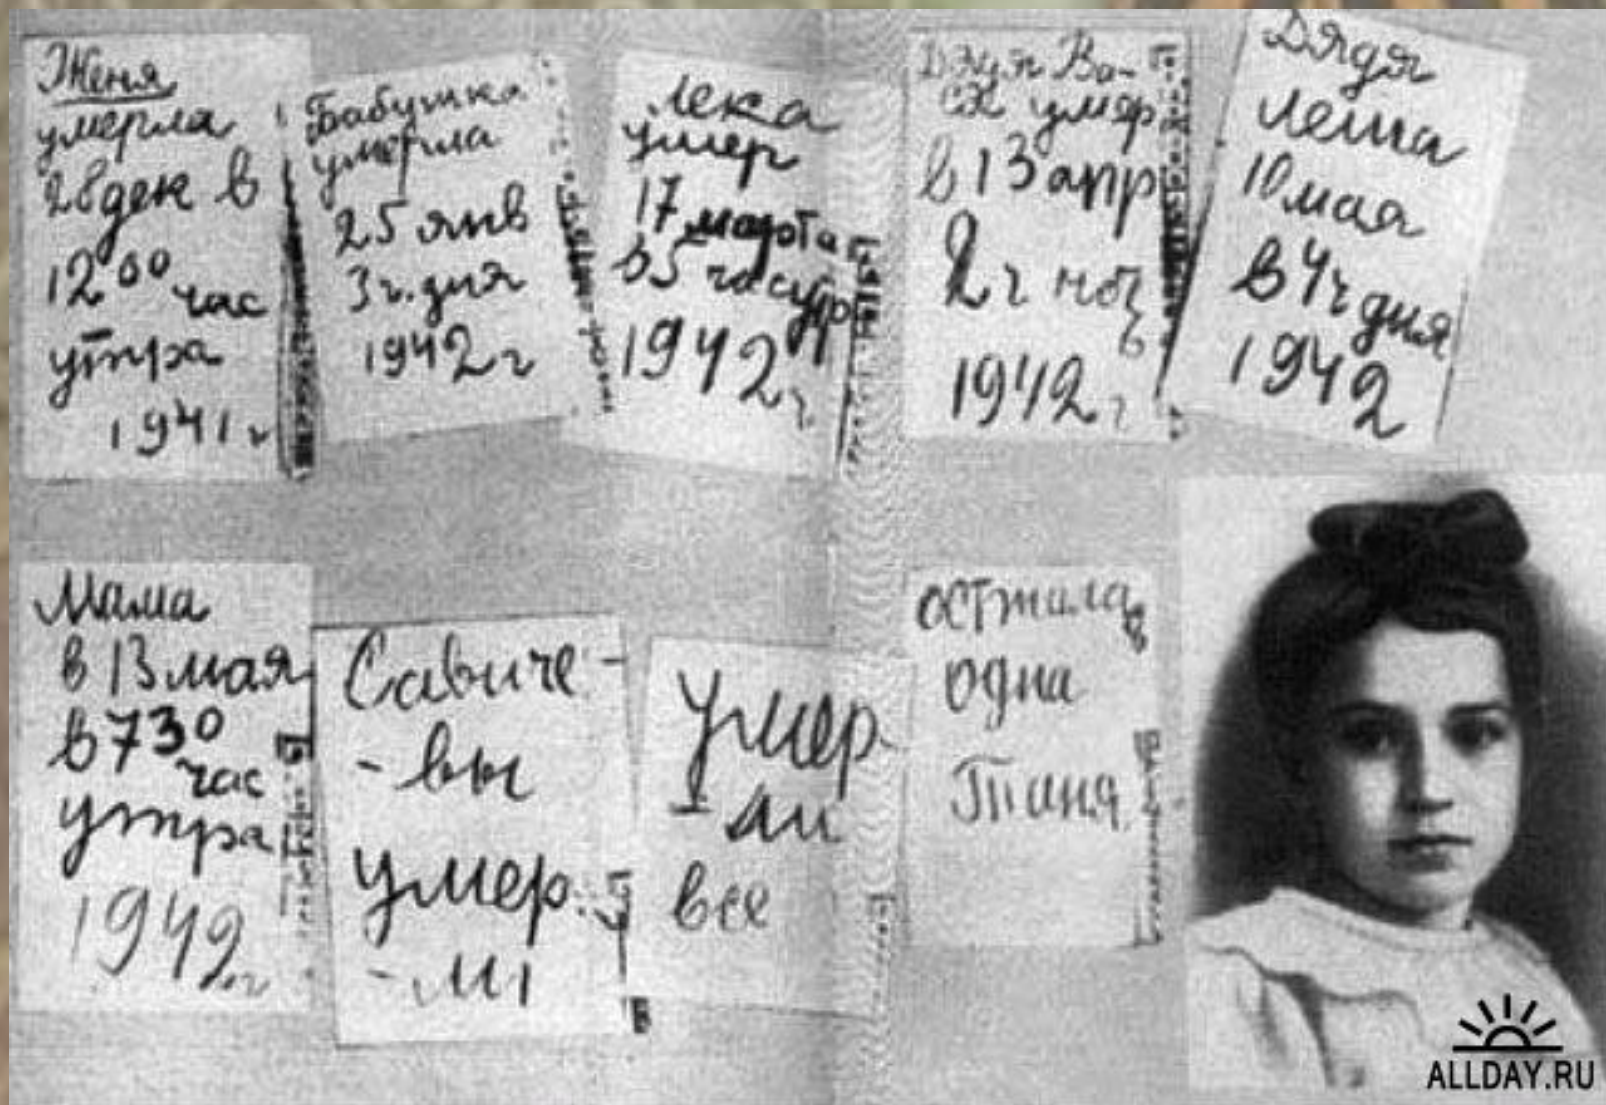 Женя
умерла
28 дек в
12 00 час
утра
1941 г
Бабушка
умерла
25 янв
3 ч. дня
1942 г
Лека
умер
17 марта
в 5 час утр
1942 г
Дядя Ва-
ся умер
в 13 апр
2 ч ночь
1942 г
Дядя
Леша
10 мая
в 4 ч дня
1942
Мама
в 13 мая
в 7 30
час
утра
1942 г
Савиче-
-вы
умер
-ли
Умер
-ли
все
осталась
одна
Таня
ALLDAY.RU